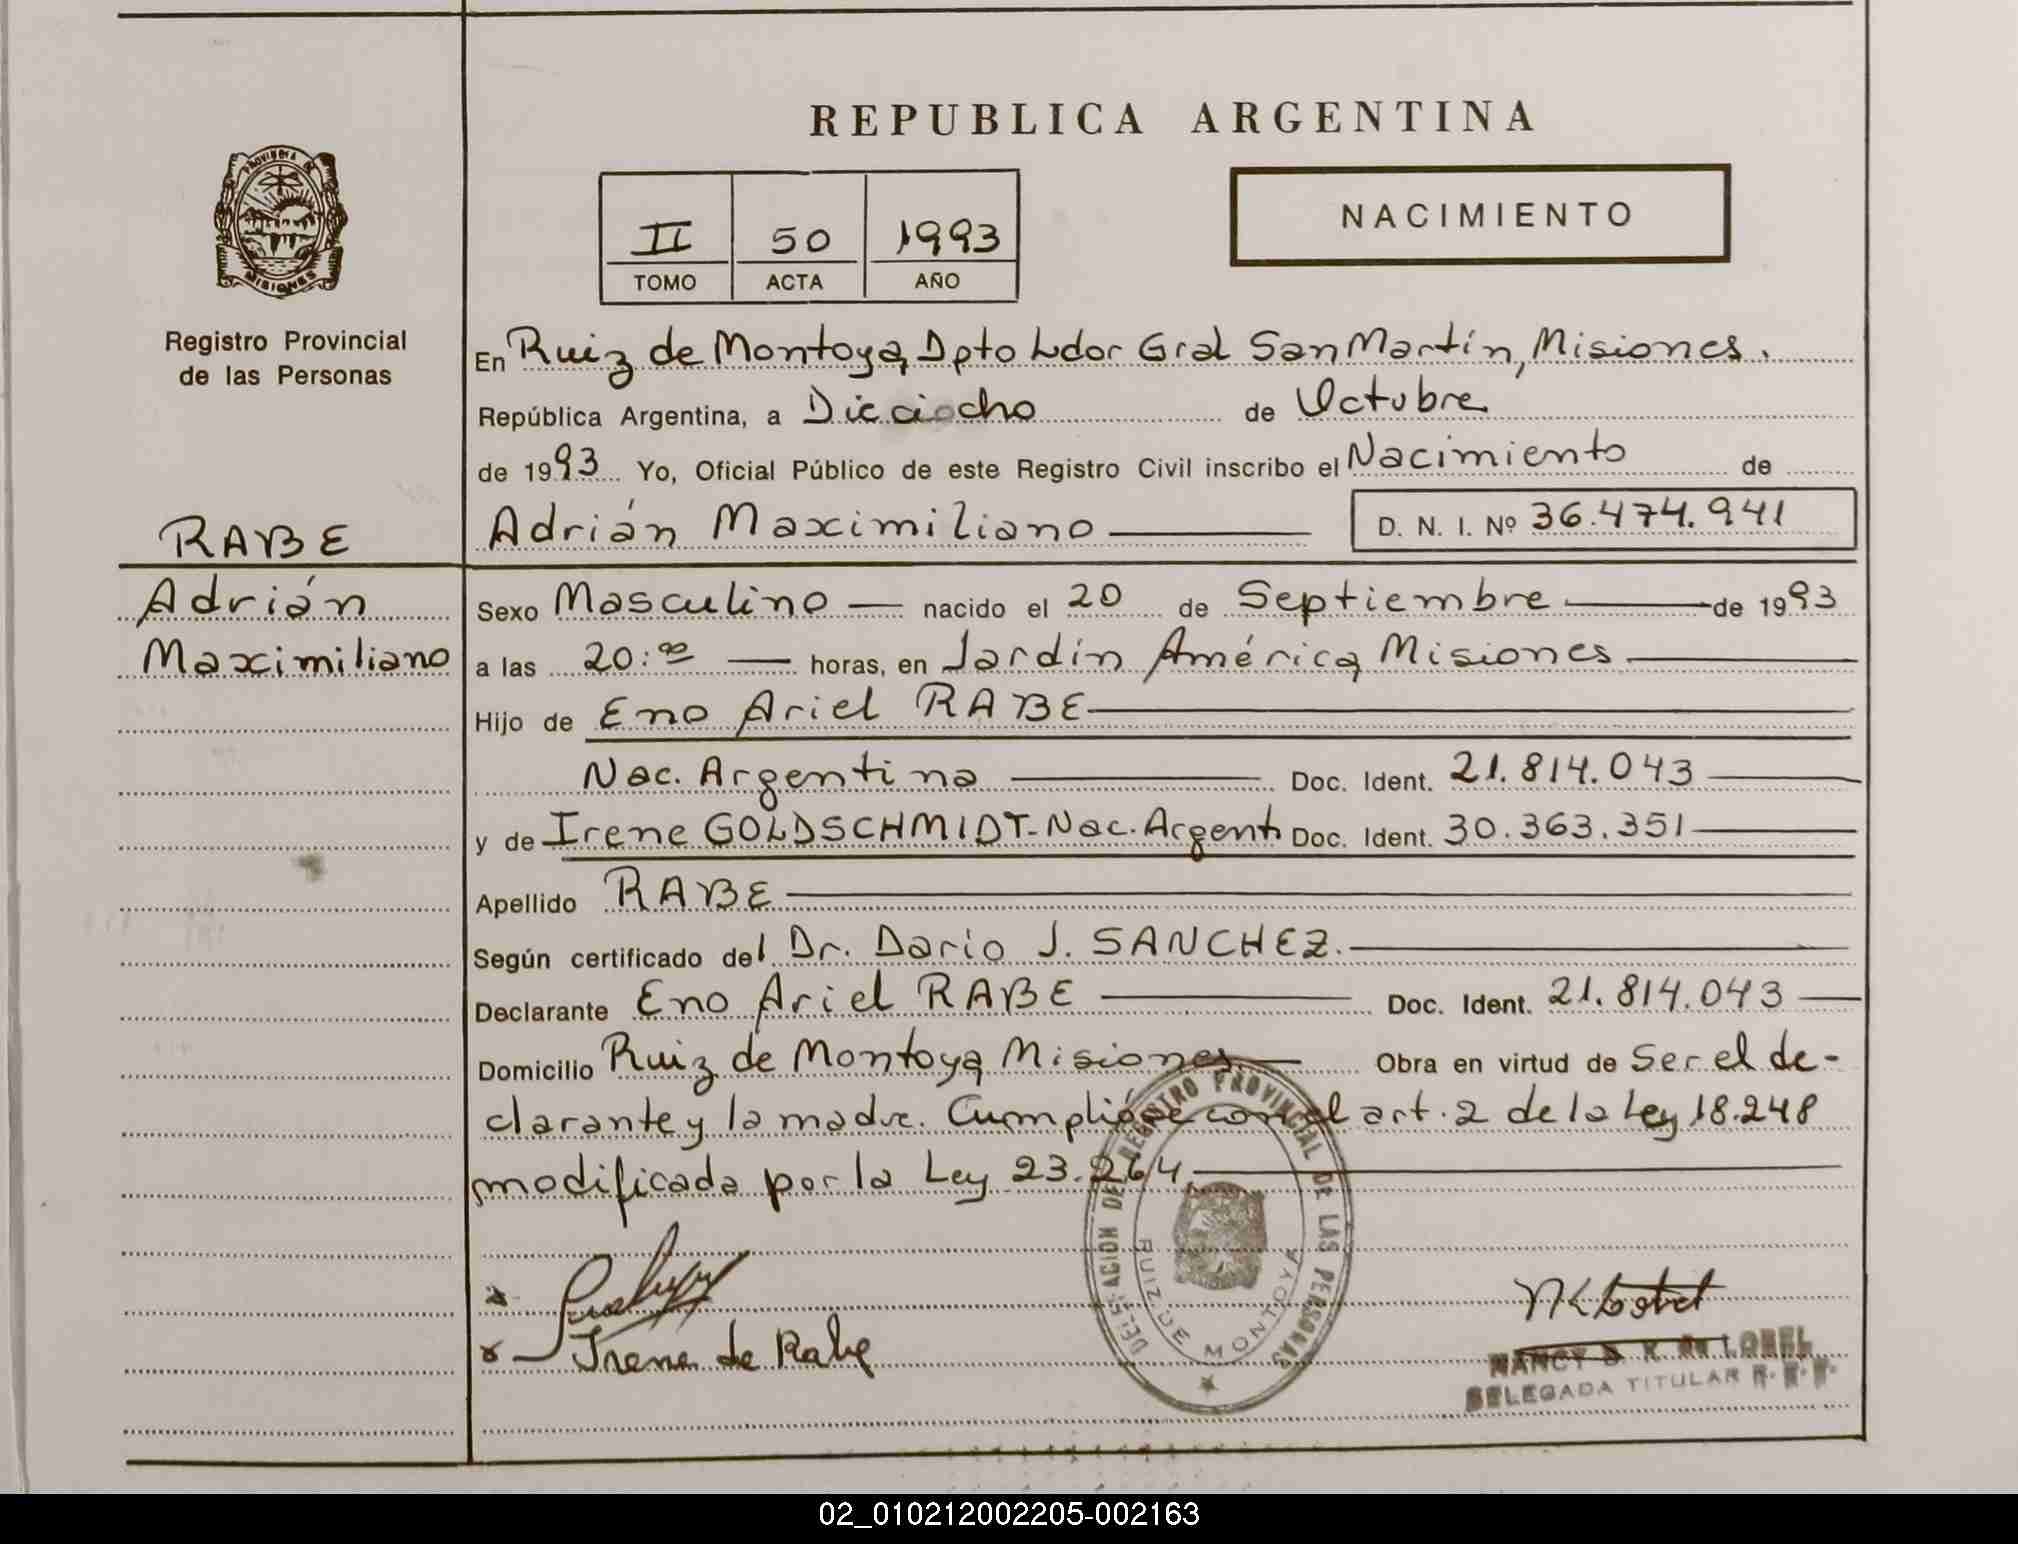 REPUBLICA ARGENTINA
PROVINCIA DE
MISIONES
Registro Provincial
de las Personas
II 50 1993
TOMO ACTA AÑO
NACIMIENTO
En Ruiz de Montoya, Dpto Ldor Gral San Martín, Misiones.
República Argentina, a Dieciocho de Octubre
de 1993 Yo, Oficial Público de este Registro Civil inscribo el Nacimiento de
Adrián Maximiliano D. N. I. Nº 36.474.941
RABE
Adrián
Maximiliano
Sexo Masculino nacido el 20 de Septiembre de 1993
a las 20:00 horas, en Jardín América, Misiones
Hijo de Eno Ariel RABE
Nac. Argentina Doc. Ident. 21.814.043
y de Irene GOLDSCHMIDT-Nac. Argent Doc. Ident. 30.363.351
Apellido RABE
Según certificado del Dr. Dario J. SANCHEZ.
Declarante Eno Ariel RABE Doc. Ident. 21.814.043
Domicilio Ruiz de Montoya, Misiones Obra en virtud de Ser el de-
clarante y la madre. Cumplióse con el art. 2 de la Ley 18.248
modificada por la Ley 23.264
DELEGACION DEL REGISTRO PROVINCIAL DE LAS PERSONAS
RUIZ DE MONTOYA
Irene de Rabe
NANCY K. de LOBEL
DELEGADA TITULAR
02_010212002205-002163